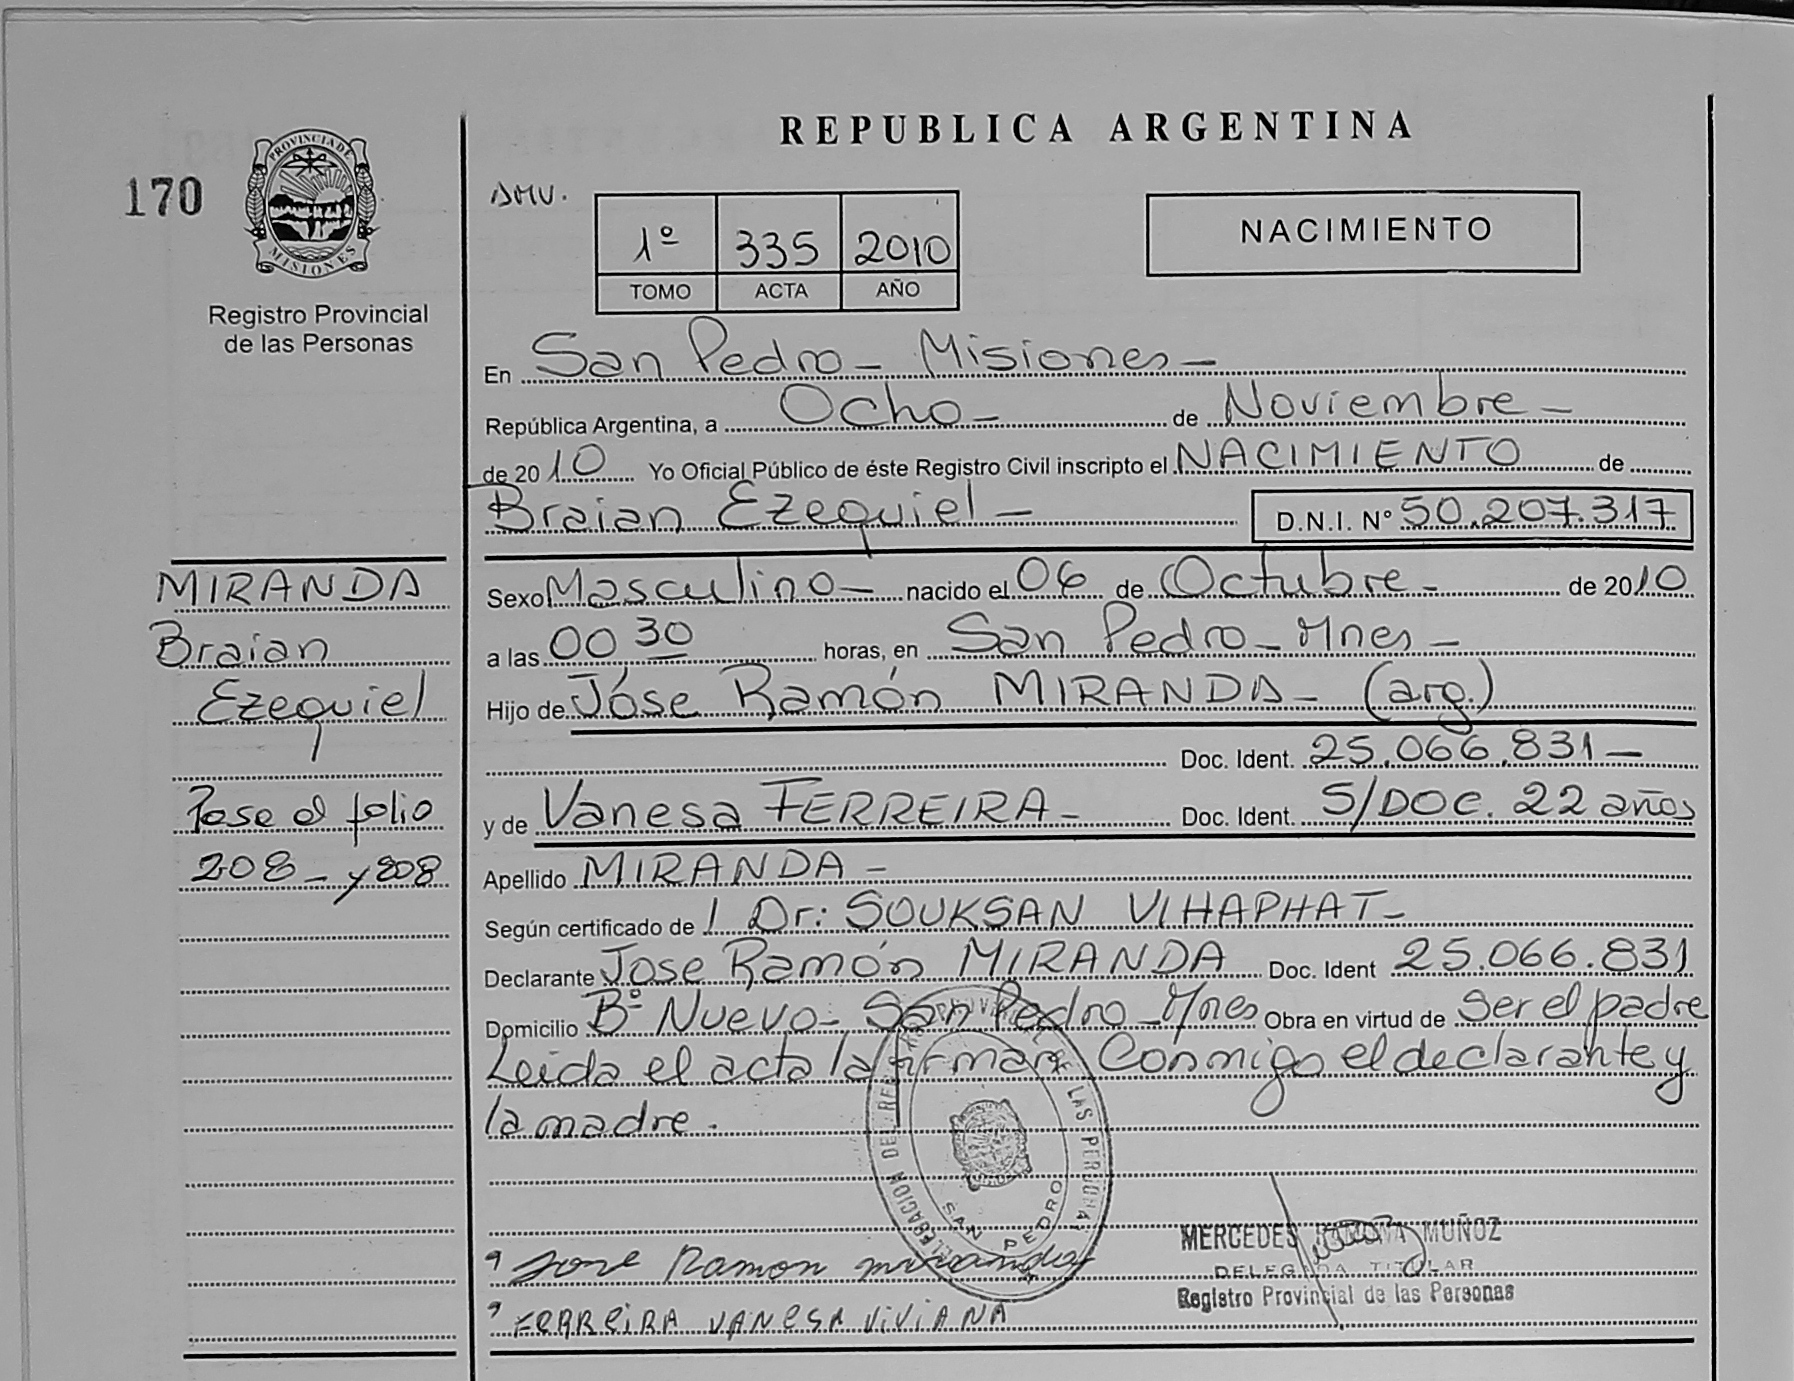 REPUBLICA ARGENTINA
170
PROVINCIA DE MISIONES
Registro Provincial
de las Personas
1º 335 2010
TOMO ACTA AÑO
NACIMIENTO
En San Pedro - Misiones -
República Argentina, a Ocho - de Noviembre -
de 2010 Yo Oficial Público de éste Registro Civil inscripto el NACIMIENTO de
Braian Ezequiel - D.N.I. Nº 50.207.317
MIRANDA
Braian
Ezequiel
Pase al folio
208 - y 808
Sexo Masculino - nacido el 06 de Octubre - de 2010
a las 00 30 horas, en San Pedro - Mnes -
Hijo de Jóse Ramón MIRANDA - (arg.)
Doc. Ident. 25.066.831 -
y de Vanesa FERREIRA - Doc. Ident. S/DOC. 22 años
Apellido MIRANDA -
Según certificado de / Dr: SOUKSAN VIHAPHAT -
Declarante Jose Ramón MIRANDA Doc. Ident 25.066.831
Domicilio Bº Nuevo - San Pedro - Mnes Obra en virtud de ser el padre
Leida el acta la firman Conmigo el declarante y
la madre.
DELEGACION DEL REGISTRO PROVINCIAL DE LAS PERSONAS
SAN PEDRO
Jose Ramon miranda
FERREIRA VANESA ViViANA
MERCEDES RAMONA MUÑOZ
DELEGADA TITULAR
Registro Provincial de las Personas